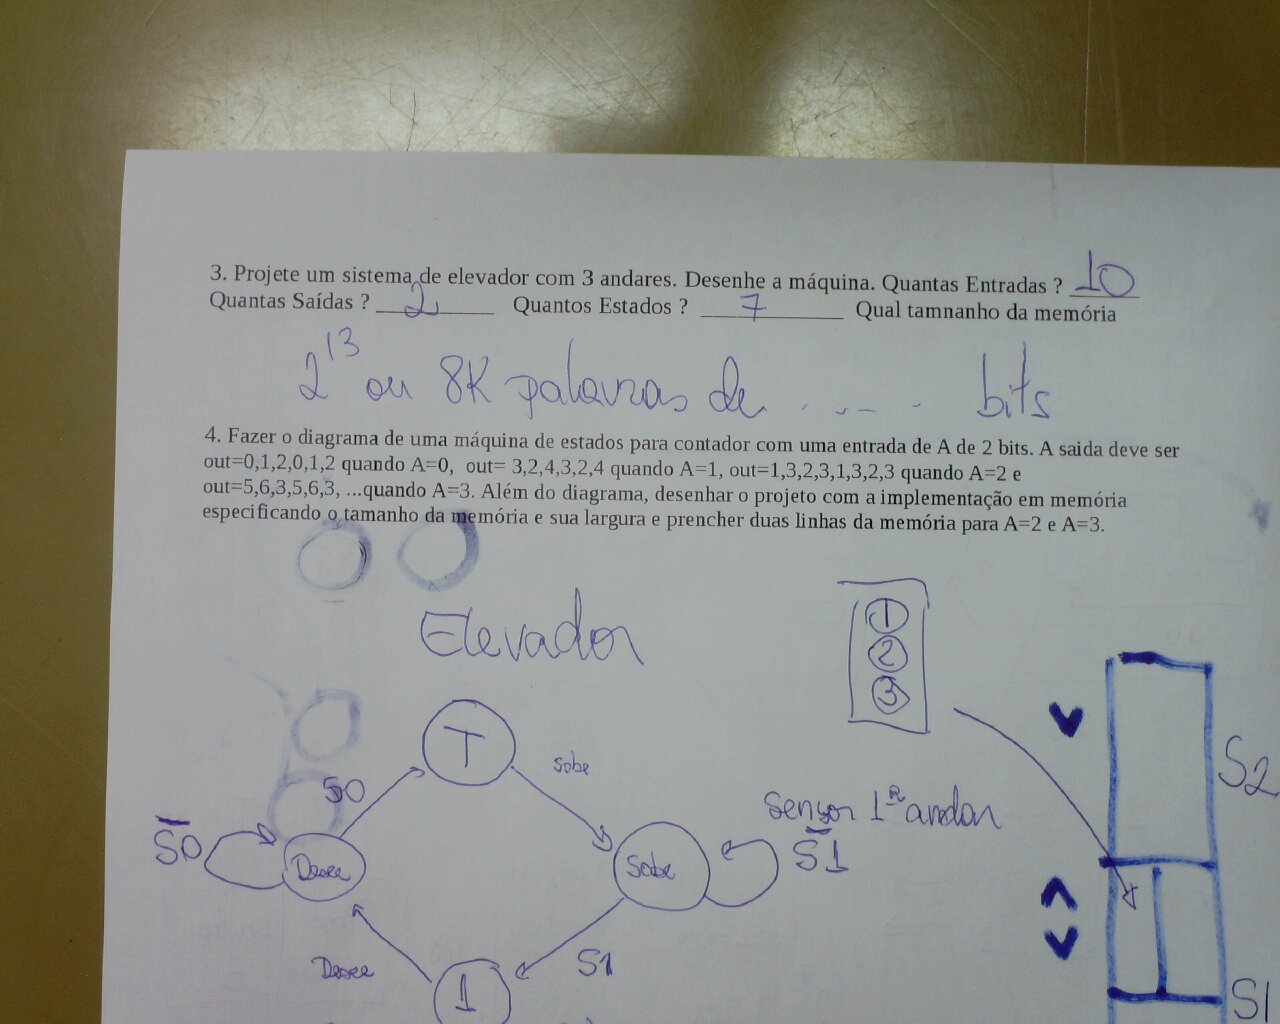 3. Projete um sistema de elevador com 3 andares. Desenhe a máquina. Quantas Entradas ? 10
Quantas Saídas ? 2 Quantos Estados ? 7 Qual tamnanho da memória
2^13 ou 8K palavras de . . - - . bits
4. Fazer o diagrama de uma máquina de estados para contador com uma entrada de A de 2 bits. A saida deve ser
out=0,1,2,0,1,2 quando A=0, out= 3,2,4,3,2,4 quando A=1, out=1,3,2,3,1,3,2,3 quando A=2 e
out=5,6,3,5,6,3, ...quando A=3. Além do diagrama, desenhar o projeto com a implementação em memória
especificando o tamanho da memória e sua largura e prencher duas linhas da memória para A=2 e A=3.
Elevador
1
2
3
T
S0
sobe
S2
Sensor 1º andar
S̅0̅
Desce
Sobe
S̅1
Desce
S1
1
S1